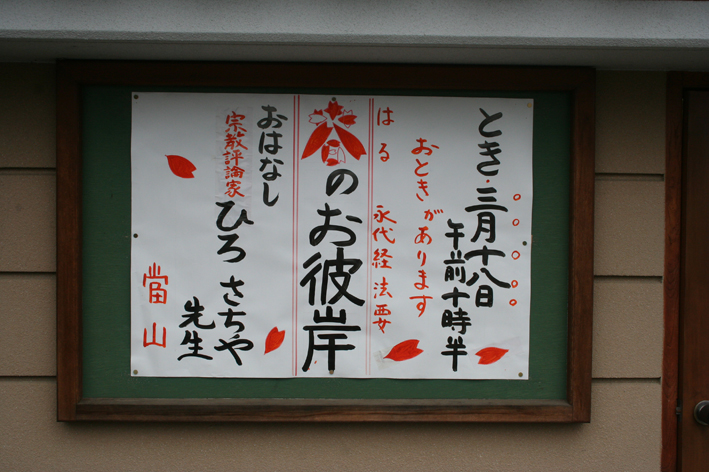 とき・三月十八日
午前十時半
おときがあります
はる 永代経法要
春のお彼岸
おはなし
宗教評論家
ひろ さちや
先生
當山